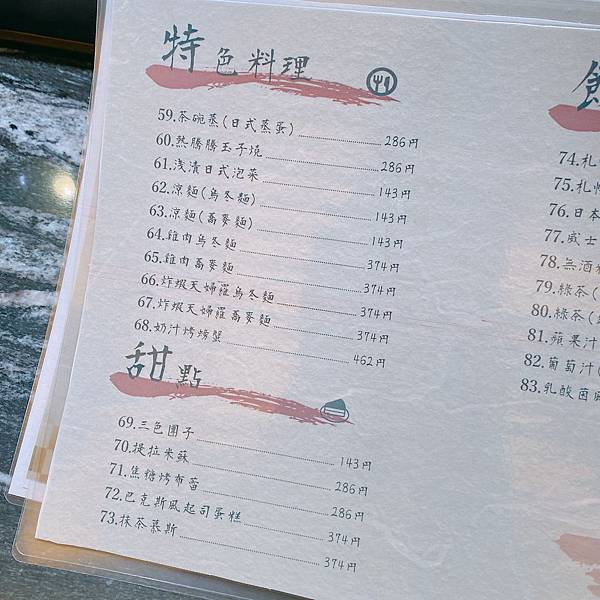 特色料理
59.茶碗蒸(日式蒸蛋) 286円
60.熱騰騰玉子燒 286円
61.浅漬日式泡菜 143円
62.涼麵(烏冬麵) 143円
63.涼麵(蕎麥麵) 143円
64.雞肉烏冬麵 374円
65.雞肉蕎麥麵 374円
66.炸蝦天婦羅烏冬麵 374円
67.炸蝦天婦羅蕎麥麵 374円
68.奶汁烤螃蟹 462円
甜點
69.三色團子 143円
70.提拉米蘇 286円
71.焦糖烤布蕾 286円
72.巴克斯風起司蛋糕 374円
73.抹茶慕斯 374円
74.札
75.札幌
76.日本
77.威士
78.無酒精
79.綠茶(
80.綠茶(
81.蘋果汁
82.葡萄汁(
83.乳酸菌